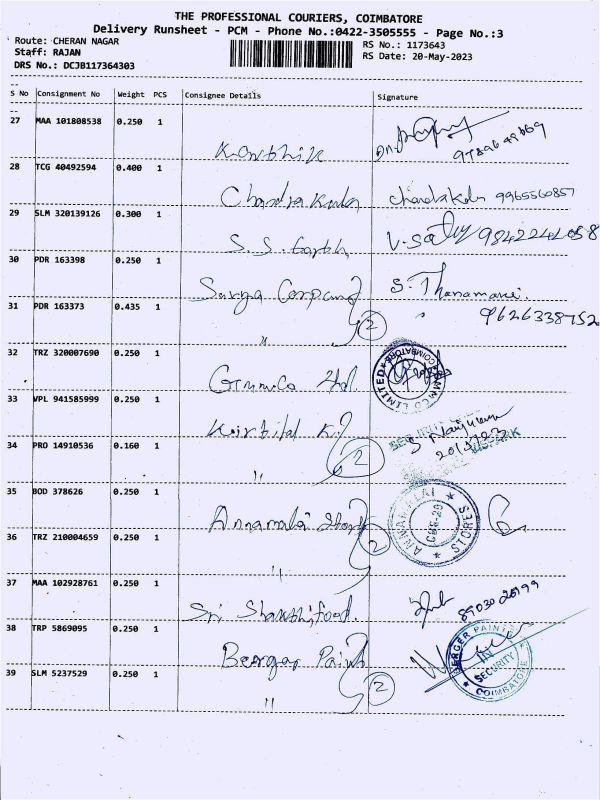 THE PROFESSIONAL COURIERS, COIMBATORE
Delivery Runsheet - PCM - Phone No.:0422-3505555 - Page No.:3
Route: CHERAN NAGAR RS No.: 1173643
Staff: RAJAN RS Date: 20-May-2023
DRS No.: DCJB117364303
S No Consignment No Weight PCS Consignee Details Signature
27 MAA 101808538 0.250 1
Karthik
28 TCG 40492594 0.400 1
Chandrakala Chandrakala 9965560857
29 SLM 320139126 0.300 1
S.S. V. 9842241058
30 PDR 163398 0.250 1
Surya Company S. Thanamani
31 PDR 163373 0.435 1 9626338752
" 2
32 TRZ 320007690 0.250 1
LIMITED COIMBATORE
33 VPL 941585999 0.250 1
34 PRO 14910536 0.160 1
" 2
35 BOD 378626 0.250 1
Annamalai Stores ANNAMALAI STORES CBE-29
36 TRZ 210004659 0.250 1 2
"
37 MAA 102928761 0.250 1
Sri Shanthi food.
38 TRP 5869095 0.250 1
Berger Paint BERGER PAINTS SECURITY COIMBATORE
39 SLM 5237529 0.250 1 2
"